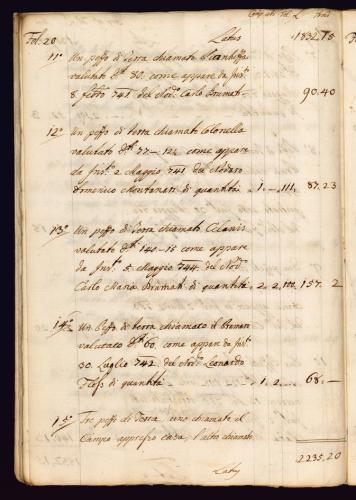 Fol. 20 Latus 1832.15
11º Un pesso di terra chiamato
valutato D.ti 80. come appare da Ins.to
8. febro 741 del Nod.o Carlo Brumati 90.40
12º Un pesso di terra chiamato Colonella
valutato D.ti 77.-12. come appare
da Ins.to 2 Maggio 741 del Nodaro
Domenico Montanari di quantità . 1. 87.23
13º Un pesso di terra chiamato
valutato D.ti 140.-15 come appare
da Ins.to 5. Maggio 744. del Nod.o
Carlo Maria Brumati di quantità . 2. 2. 157. 2
14º Un Pesso di terra chiamato il
valutato D.ti 60. come appare da Ins.to
30. Luglio 742 del Nod.o Leonardo
di quantità . 1. 2. 68.-
15º Tre pesse di Terra uno chiamato il
Campo appresso casa, l'altro chiamato
2235.20
Latus